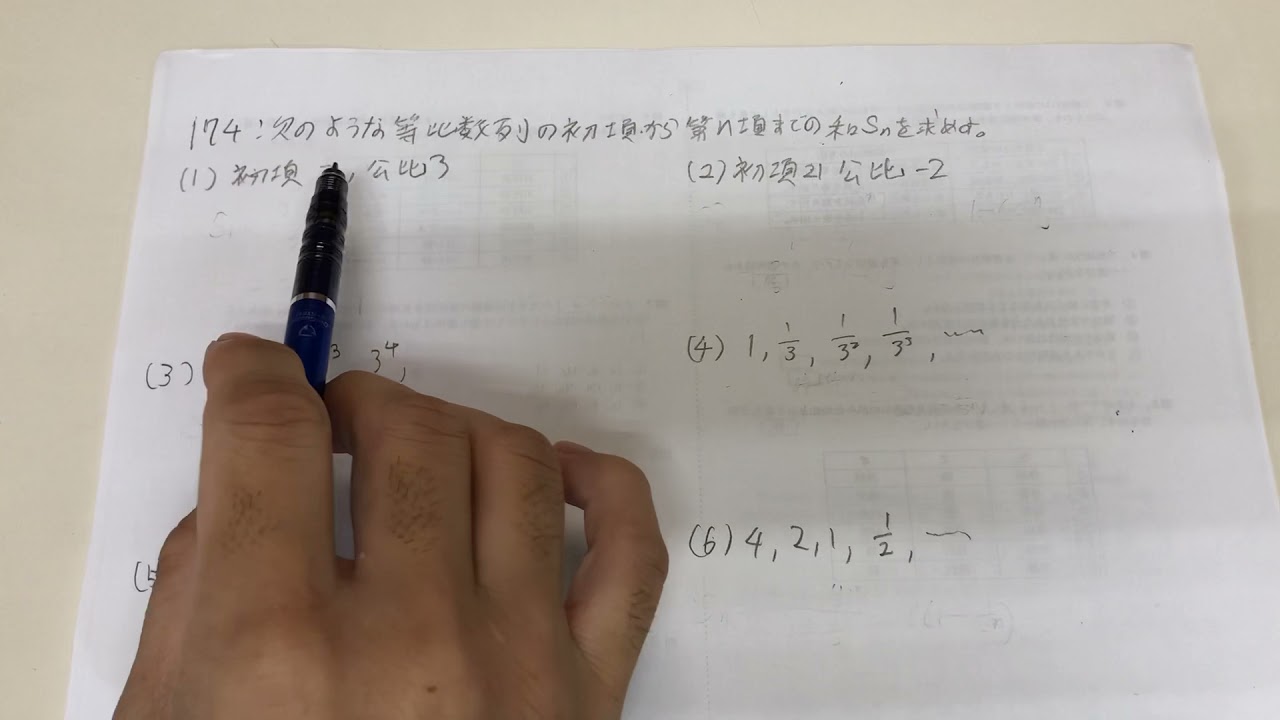 174:次のような等比数列の初項から第n項までの和Snを求めよ。
(1) 初項 , 公比3
(2) 初項21 公比-2
(3) 3, 3⁴,
(4) 1, 1/3, 1/3², 1/3³, ……
(6) 4, 2, 1, 1/2, ……